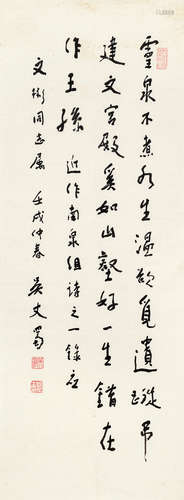 靈泉不煮水生溫欲覓遺蹤吊
建文宮殿奚如山壑好一生錯在
作王孫 近作南泉組詩之一錄應
文 同志屬 壬戌仲春 吴丈蜀